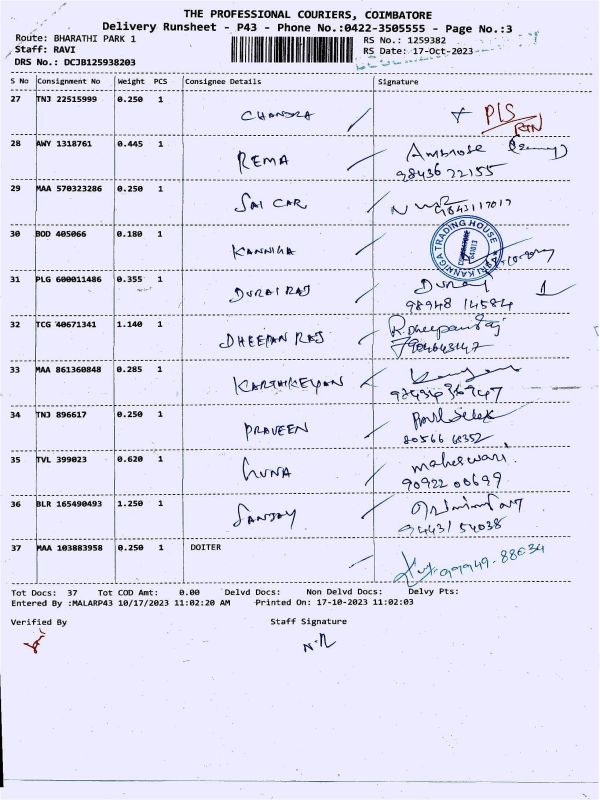 THE PROFESSIONAL COURIERS, COIMBATORE
Delivery Runsheet - P43 - Phone No.:0422-3505555 - Page No.:3
Route: BHARATHI PARK 1 RS No.: 1259382
Staff: RAVI RS Date: 17-Oct-2023
DRS No.: DCJB125938203
S No Consignment No Weight PCS Consignee Details Signature
27 TNJ 22515999 0.250 1 CHANDRA PLS
RTN
28 AWY 1318761 0.445 1 REMA Ambrose
98436 72155
29 MAA 570323286 0.250 1 SAI CAR
9843117017
30 BOD 405066 0.180 1 KANNIGA
SRI KANNIGA TRADING HOUSE
31 PLG 600011486 0.355 1 DURAI RAJ Durai
98948 14584
32 TCG 40671341 1.140 1 DHEEPAN RAJ R.Dheepanraj
7904643147
33 MAA 861360848 0.285 1 KARTHIKEYAN
34 TNJ 896617 0.250 1 PRAVEEN
80566 48352
35 TVL 399023 0.620 1 GUNA maheswari
90922 00699
36 BLR 165490493 1.250 1 SANJAY
94431 54038
37 MAA 103883958 0.250 1 DOITER
99949-88634
Tot Docs: 37 Tot COD Amt: 0.00 Delvd Docs: Non Delvd Docs: Delvy Pts:
Entered By :MALARP43 10/17/2023 11:02:20 AM Printed On: 17-10-2023 11:02:03
Verified By Staff Signature
N.R